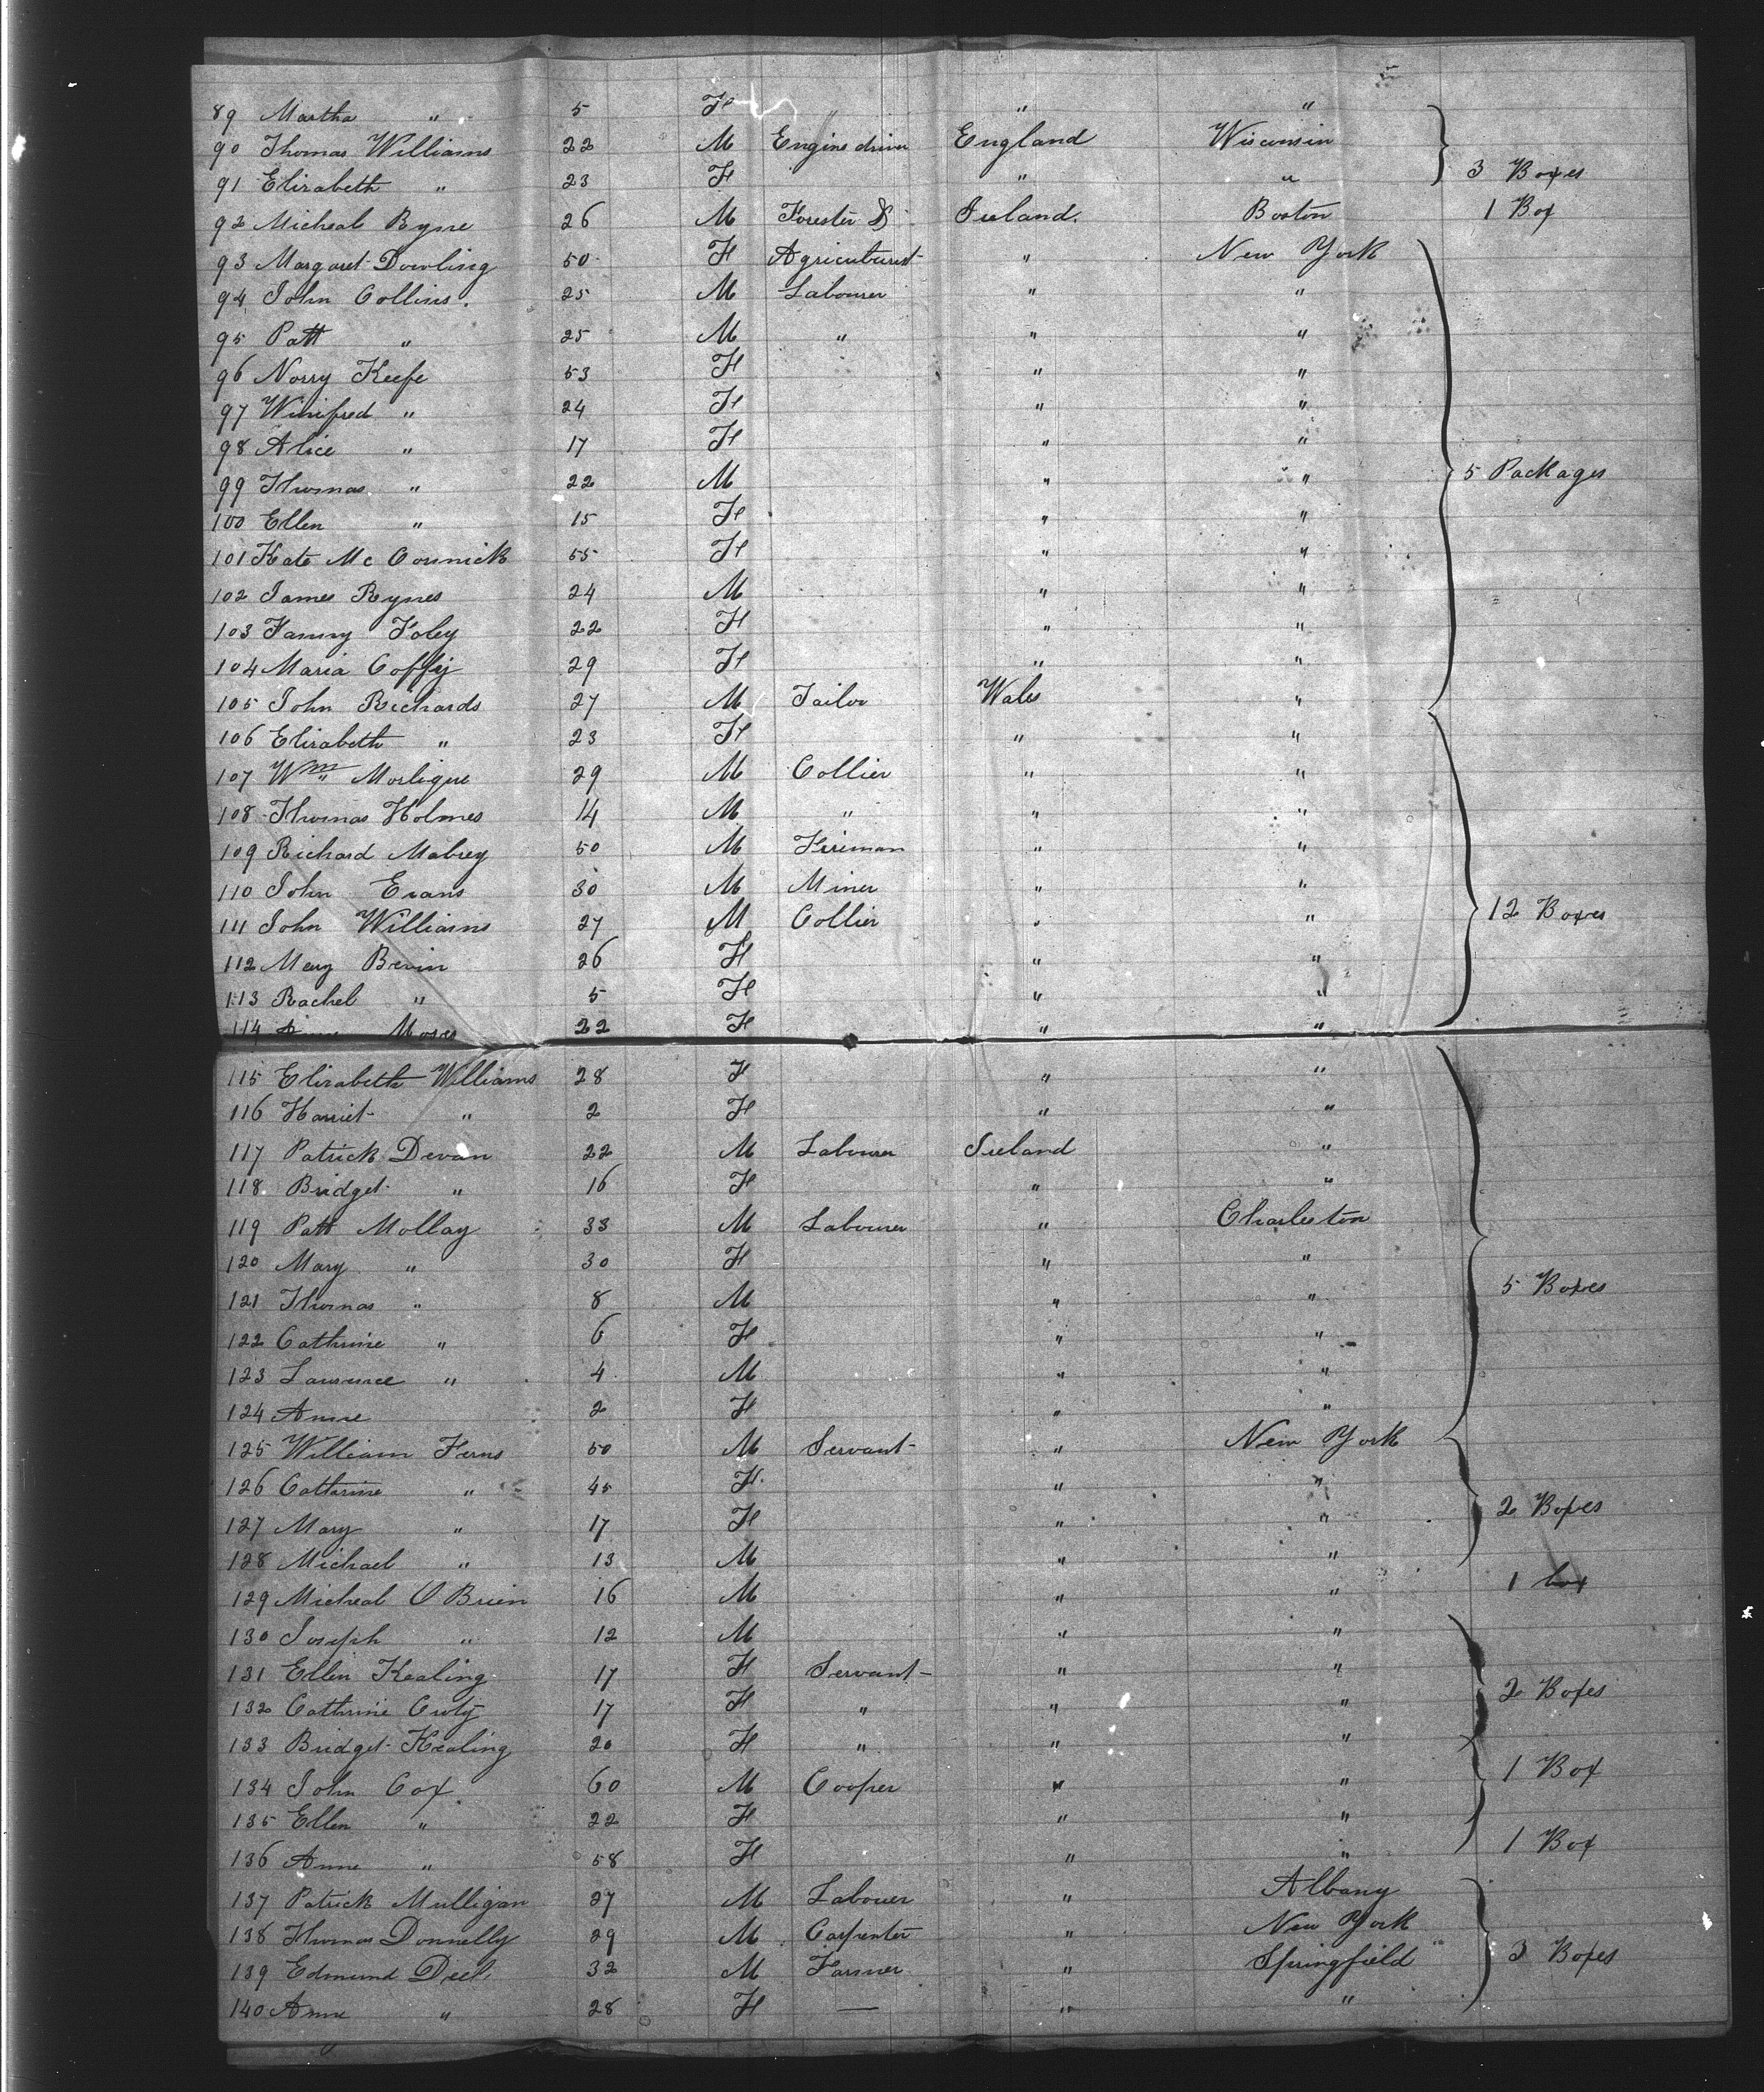 89 Martha " 5 F " " "
90 Thomas Williams 22 M Engine driver England Wisconsin
91 Elizabeth " 23 F " " 3 Boxes
92 Micheal Ryne 26 M Forester & Ireland. Boston 1 Box
93 Margaret Dowling 50 F Agriculturist " New York
94 John Collins. 25 M Labourer " "
95 Patt " 25 M " " "
96 Norry Keefe 53 F " "
97 Winifred " 24 F " "
98 Alice " 17 F " "
99 Thomas " 22 M " " 5 Packages
100 Ellen " 15 F " "
101 Kate Mc Connick 55 F " "
102 James Rynes 24 M " "
103 Fanny Foley 22 F " "
104 Maria Coffy 29 F " "
105 John Richards 27 M Tailor Wales "
106 Elizabeth " 23 F " "
107 Wm Morligue 29 M Collier " "
108 Thomas Holmes 14 M " " "
109 Richard Mabrey 50 M Fireman " "
110 John Evans 30 M Miner " "
111 John Williams 27 M Collier " " 12 Boxes
112 Mary Bevin 26 F " "
113 Rachel " 5 F " "
114 Moses 22 F " "
115 Elizabeth Williams 28 F " "
116 Harriet " 2 F " "
117 Patrick Devan 22 M Labourer Ireland "
118 Bridget " 16 F " "
119 Patt Mollay 33 M Labourer " Charleston
120 Mary " 30 F " "
121 Thomas " 8 M " " 5 Boxes
122 Cathrine " 6 F " "
123 Lawrence " 4 M " "
124 Anne 2 F " "
125 William Ferns 50 M Servant " New York
126 Catharine " 45 F. " "
127 Mary " 17 F " " 2 Boxes
128 Michael " 13 M " "
129 Micheal O Brien 16 M " " 1 box
130 Joseph " 12 M " "
131 Ellen Kealing 17 F Servant " "
132 Cathrine 17 F " " " 2 Boxes
133 Bridget Kealing 20 F " " "
134 John Cox. 60 M Cooper " " 1 Box
135 Ellen " 22 F " "
136 Anne " 58 F " " 1 Box
137 Patrick Mulligan 27 M Labouer " Albany
138 Thomas Donnelly 29 M Carpenter " New York
139 Edmund Deel 32 M Farmer " Springfield 3 Boxes
140 Anne " 28 F — " "